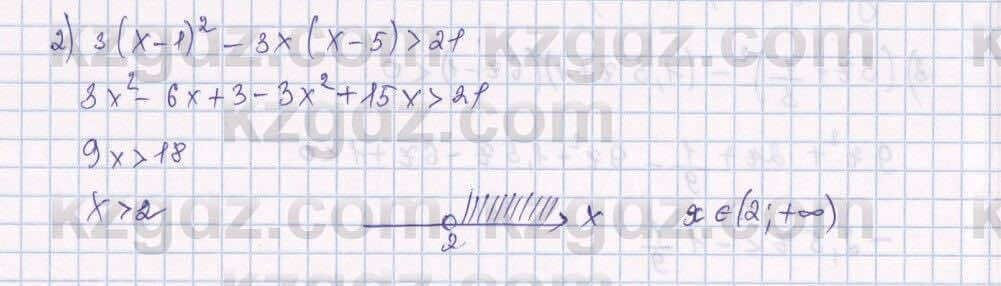 2) 3(x-1)² - 3x(x-5) > 21
3x² - 6x + 3 - 3x² + 15x > 21
9x > 18
x > 2
2
x
x ∈ (2; +∞)
kzgdz.com
kzgdz.com
kzgdz.com
kzgdz.com
kzgdz.com
kzgdz.com